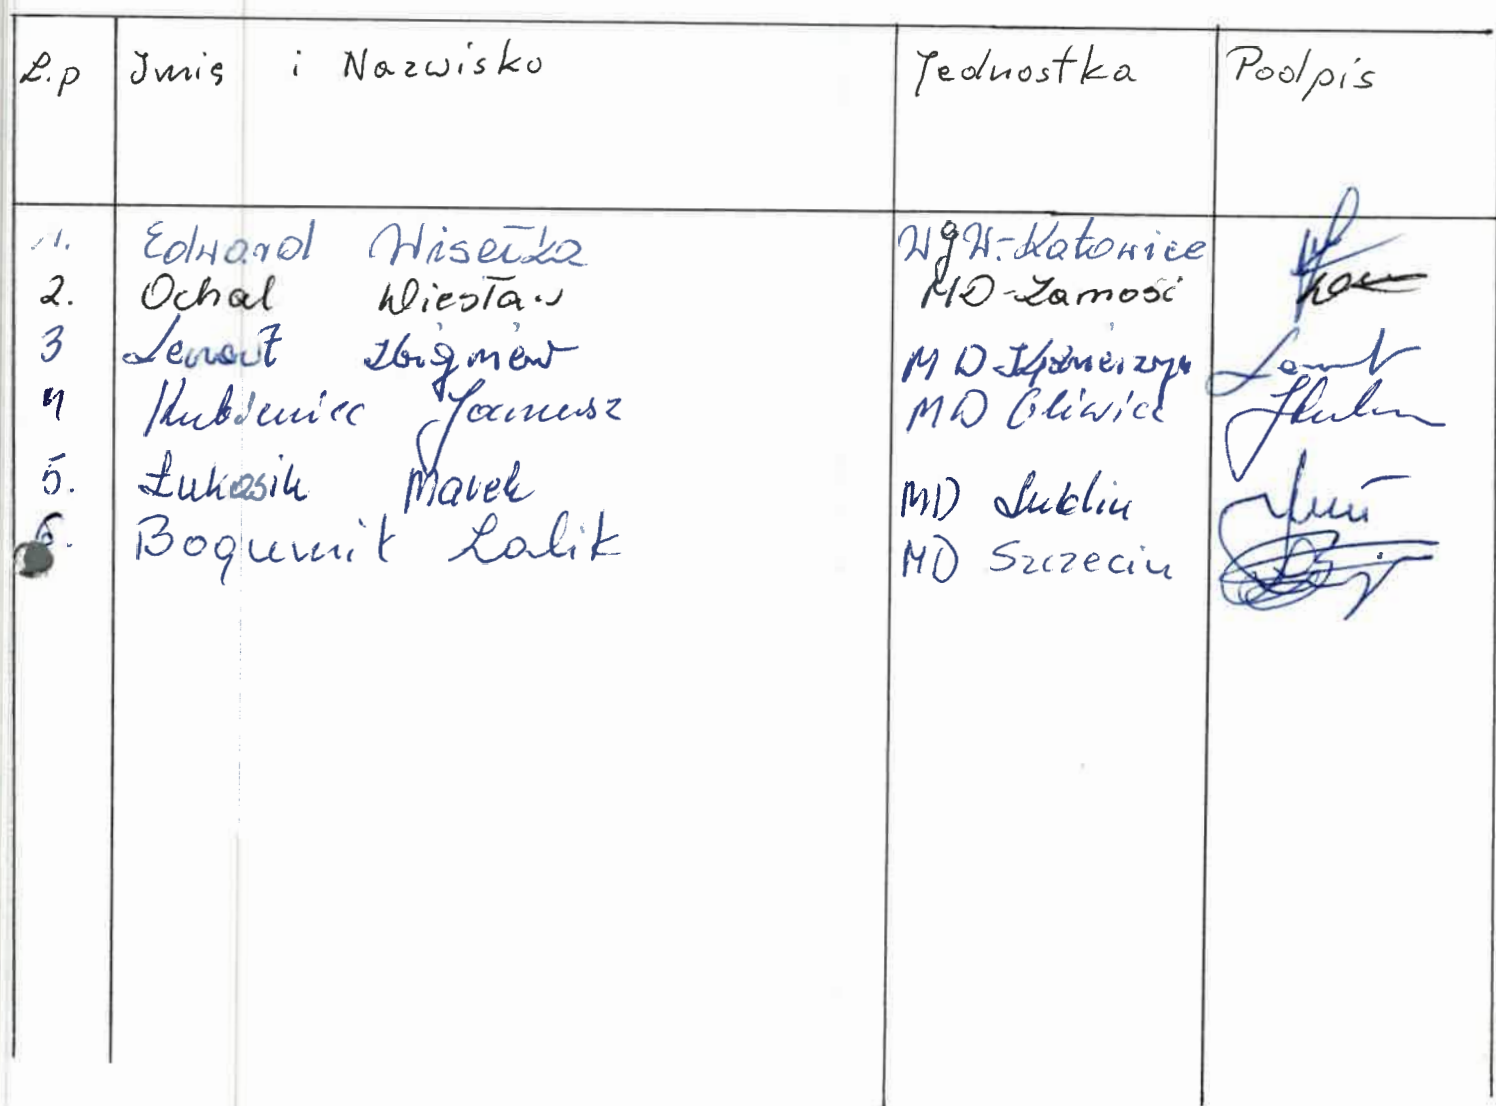 L.p Imię i Nazwisko Jednostka Podpis
1. Edward WgW-Katowice
2. Ochal Wiesław MD-Zamość
3 Lenart Zbigniew MD
4 Kubieniec Janusz MD Gliwice
5. Łukasik Marek MD Lublin
6. Bogumił Lalik MD Szczecin